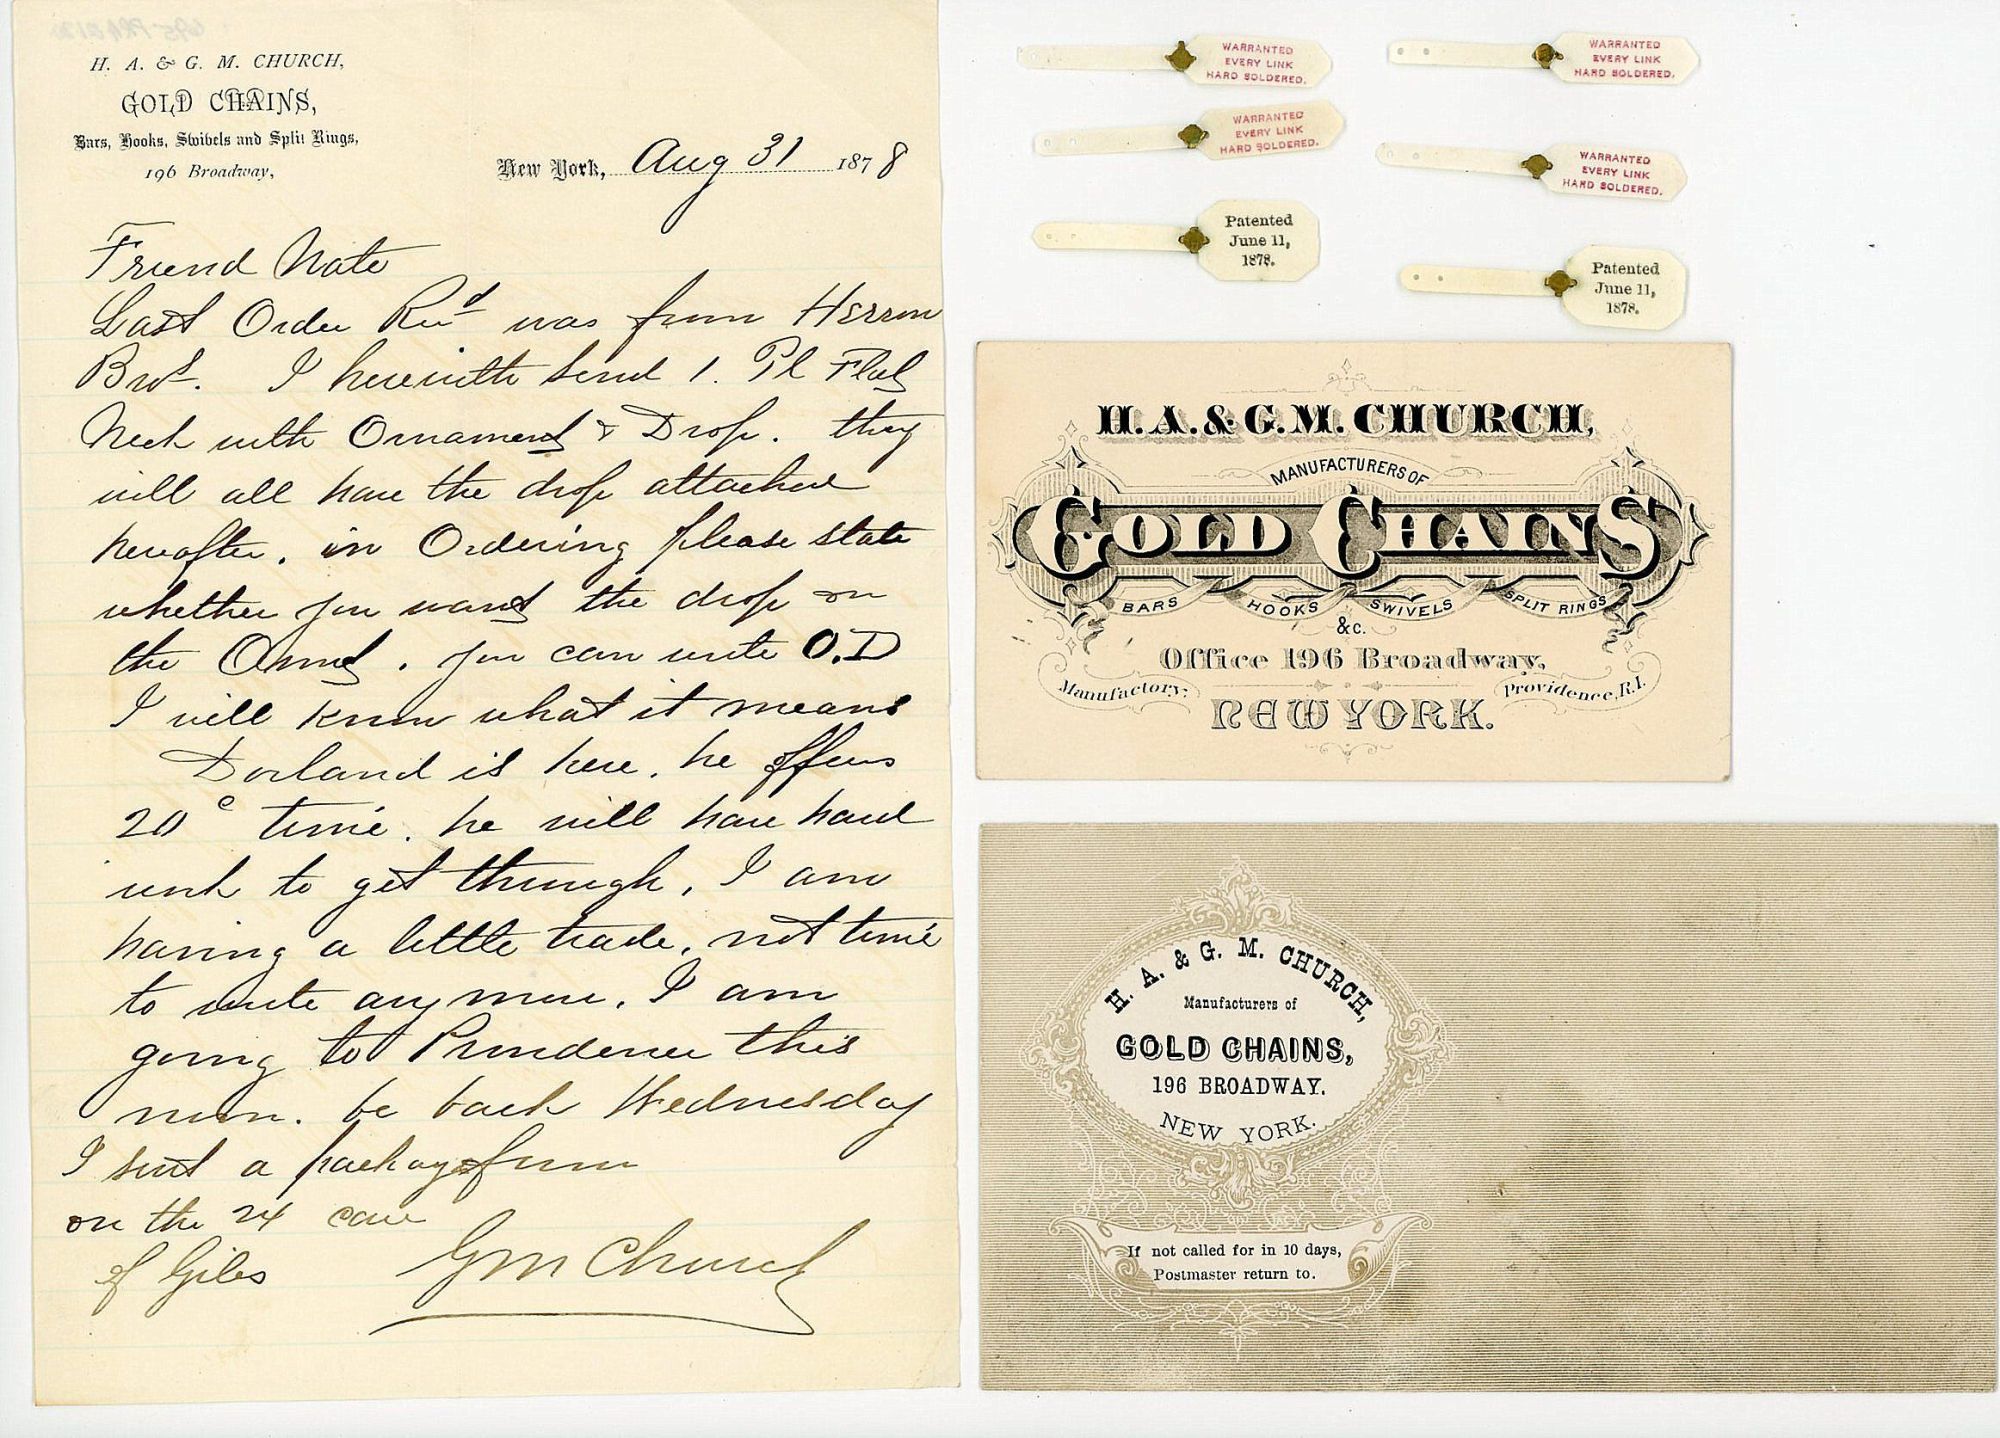 H. A. & G. M. CHURCH,
GOLD CHAINS,
Bars, Hooks, Swivels and Split Rings,
196 Broadway,
New York, Aug 31 1878
Friend Nate
Last Order Recd was from Herron
Bros. I herewith send 1. Pl Flat
Neck with Ornament & Drop. they
will all have the drop attached
hereafter. in Ordering please state
whether you want the drop on
the Ornmt. you can write O.D
I will know what it means
Dorland is here. he offers
20 c time. he will have hard
work to get through. I am
having a little trade. not time
to write any more. I am
going to Providence this
morn. be back Wednesday
I sent a package from
on the 24 care
of Giles
GM Church
WARRANTED
EVERY LINK
HARD SOLDERED.
WARRANTED
EVERY LINK
HARD SOLDERED.
WARRANTED
EVERY LINK
HARD SOLDERED.
WARRANTED
EVERY LINK
HARD SOLDERED.
Patented
June 11,
1878.
Patented
June 11,
1878.
H. A. & G. M. CHURCH,
MANUFACTURERS OF
GOLD CHAINS
BARS HOOKS SWIVELS SPLIT RINGS
&c.
Office 196 Broadway,
Manufactory: Providence, R.I.
NEW YORK.
H. A. & G. M. CHURCH,
Manufacturers of
GOLD CHAINS,
196 BROADWAY.
NEW YORK.
If not called for in 10 days,
Postmaster return to.